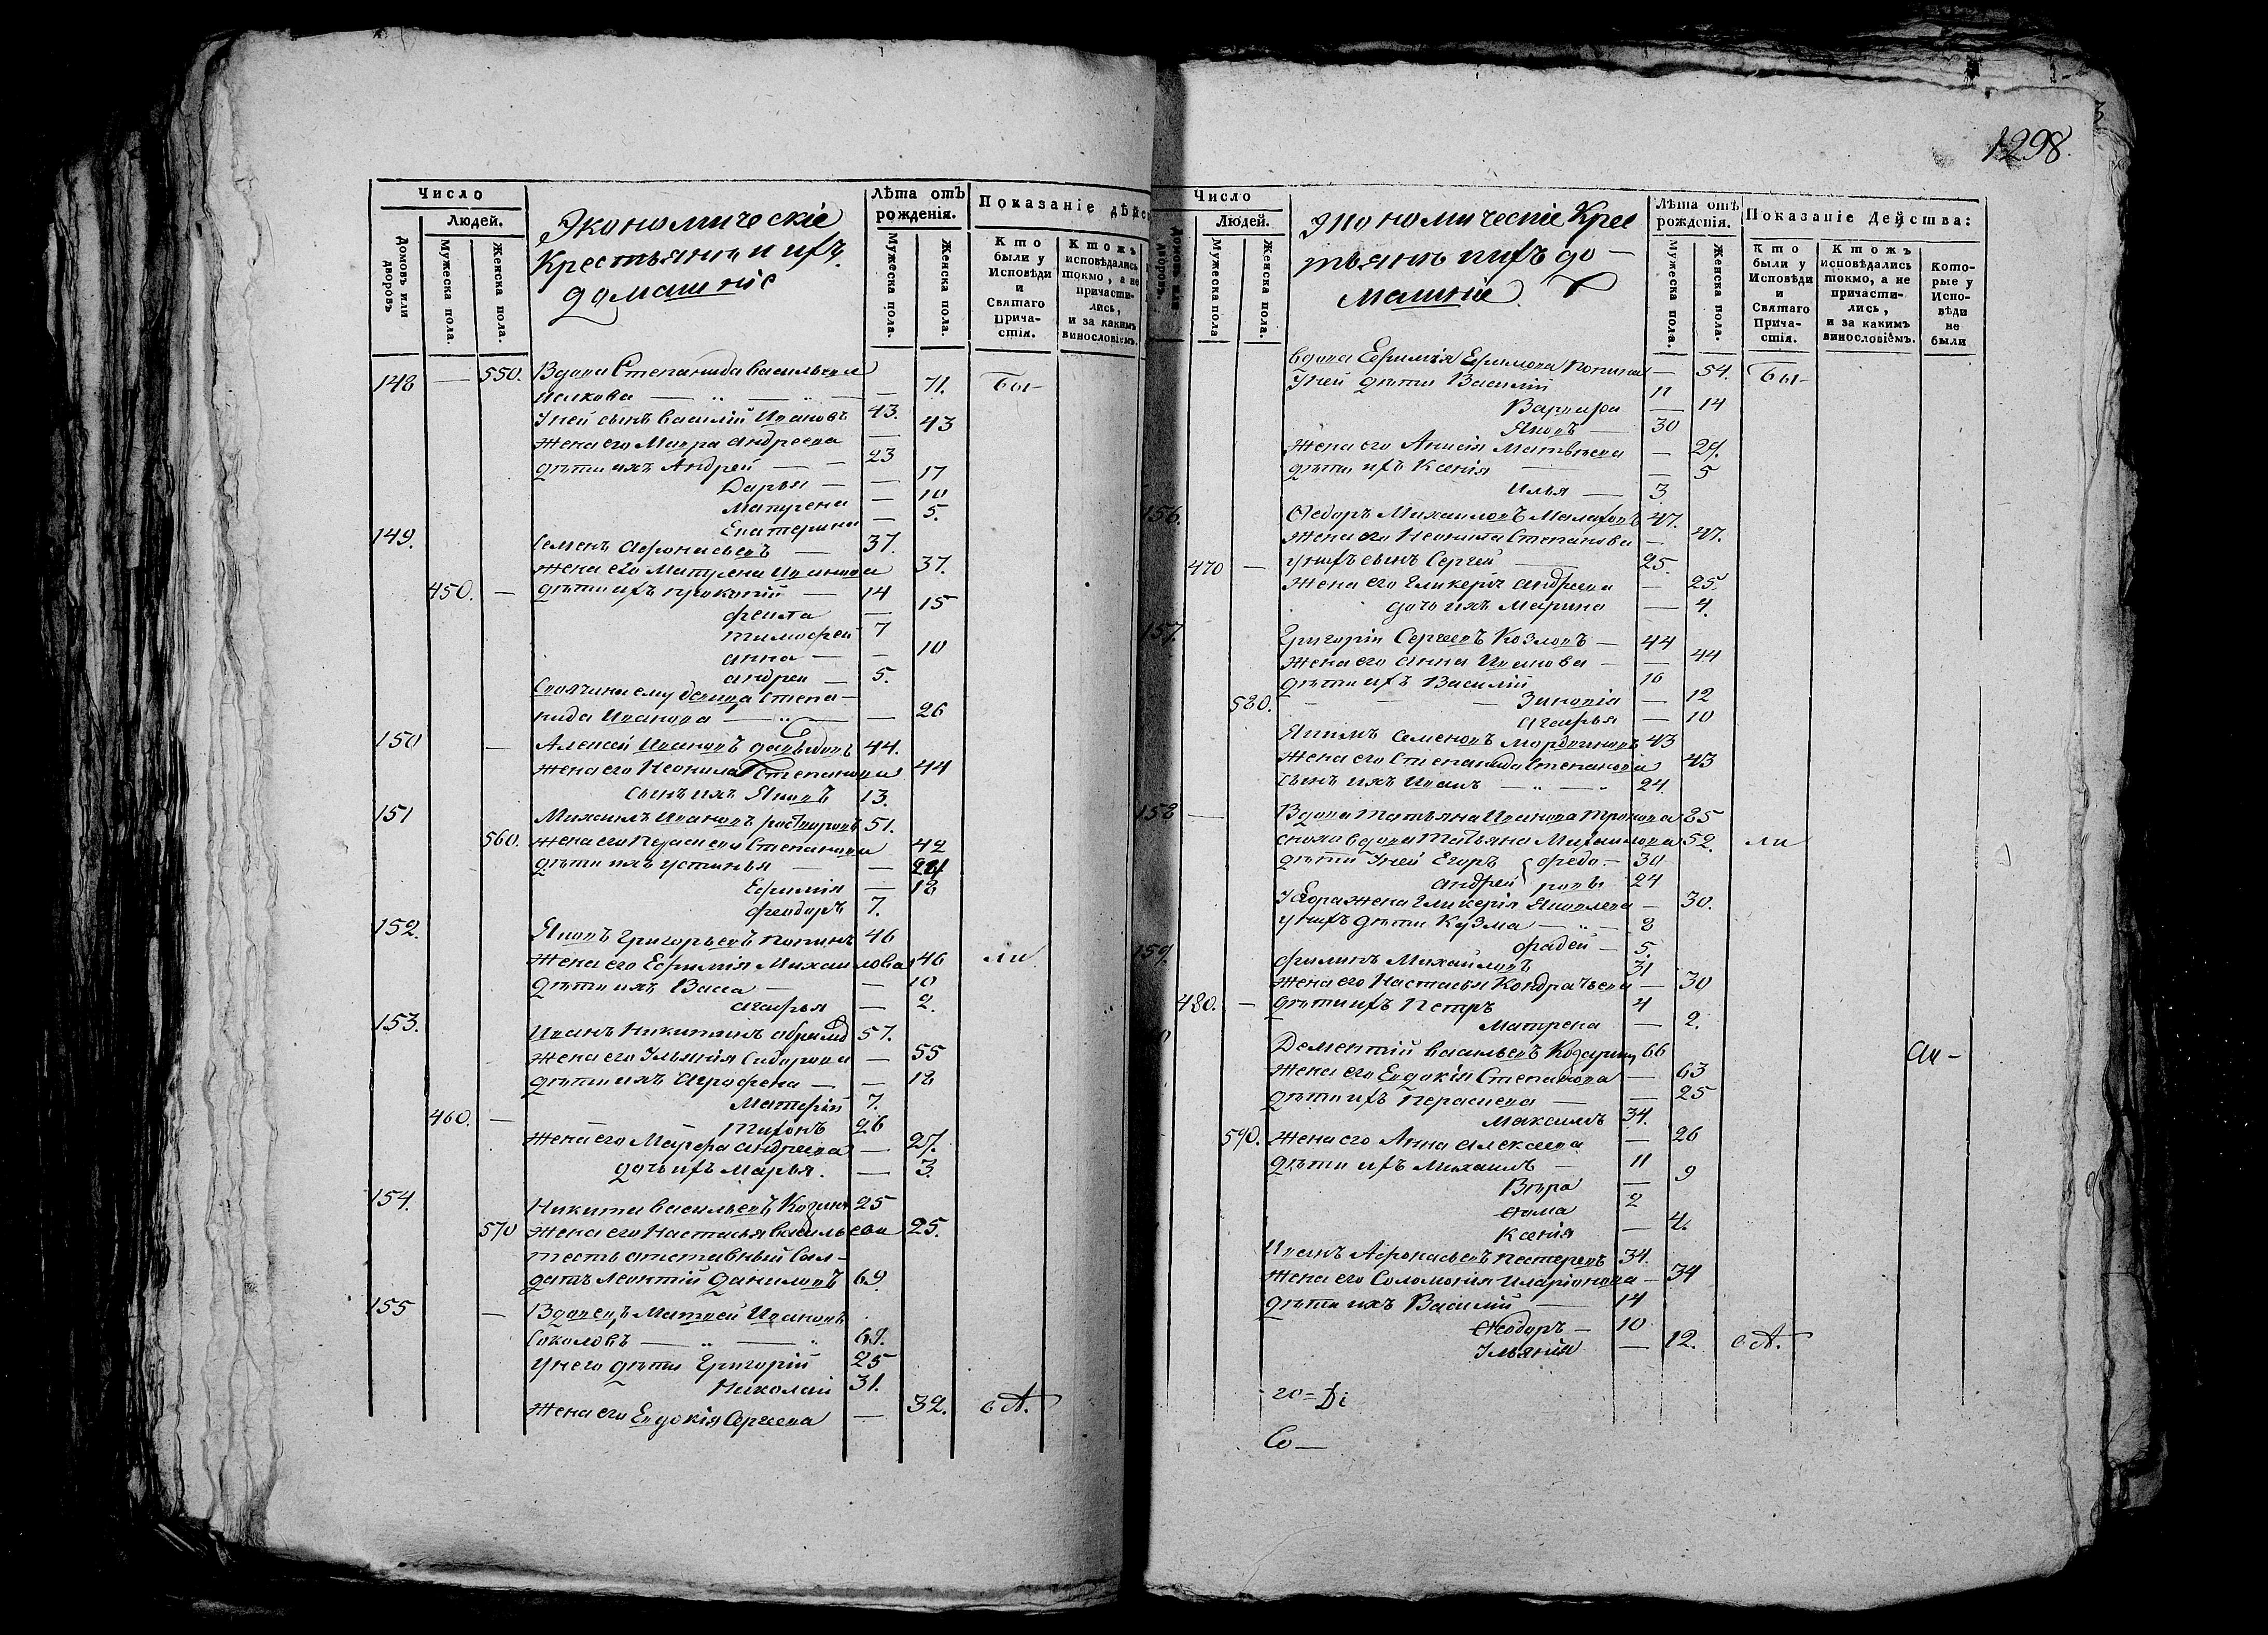 1298.
Число
Людей.
Домовъ или дворовъ
Мужеска пола.
Женска пола.
Экономическіе
Крестьянѣ и ихъ
домашніе
Лѣта отъ
рожденія.
Мужеска пола.
Женска пола.
Показаніе дѣйс
Кто
были у
Исповѣди
и
Святаго
Прича-
стія.
Ктожъ
исповѣдались
токмо, а не
причасти-
лись,
и за какимъ
винословіемъ.
148 — 550. Вдова Степанида Васильева
— 71. бы-
У ней сынъ Василій Ивановъ 43.
жена его Мавра Андреева — 43
дѣти ихъ Андрей — 23
Дарья — 17
— 10
Екатерина — 5.
149. Семенъ Афонасьевъ — 37.
жена его Матрена Иванова 37.
450. — дѣти ихъ Прокопій — 14
Фекла — 15
Тимофей 7
Анна — — 10
Андрей — 5.
Своячина ему девица Степа-
нида Иванова — — 26
150 — Алексей Ивановъ Давыдовъ 44.
жена его Неонила Степанова 44
сынъ ихъ Яковъ 13.
151 Михаилъ Ивановъ 51.
560. жена его Параскева Степанова 42
дѣти ихъ Устинья — — 21
Ефимія — 18
Феодоръ 7.
152. Яковъ Григорьевъ Попинъ 46
жена его Ефимія Михаилова 46 ли
дѣти ихъ Васса — — 10
Агафья — 2.
153. Иванъ Никитинъ 57.
жена его Ульянія Сидорова — 55
дѣти ихъ Агрофена — — 18
Матфій 7.
460. — Тихонъ 26
жена его Марфа Андреева — 27.
дочь ихъ Марья. — 3.
154. Никита Васильевъ 25
570 жена его Настасья Васильева 25.
тесть отставный сол-
датъ Леонтій Даниловъ 69.
155 — Вдовецъ Матвей Ивановъ
Соколовъ — 69.
У него дѣти Григорій 25
Николай 31.
жена его Евдокія Сергеева — 32. сА.
Число
Людей.
Домовъ или дворовъ.
Мужеска пола
Женска пола.
Экономическіе Крес
тьянѣ и ихъ до-
машніе
Лѣта отъ
рожденія.
Мужеска пола.
Женска пола.
Показаніе Действа:
Кто
были у
Исповѣди
и
Святаго
Прича-
стія.
Ктожъ
исповѣдались
токмо, а не
причасти-
лись,
и за какимъ
винословіемъ.
Кото-
рые у
Испо-
вѣди
не
были
Вдова Ефимія Ефимова Попина — 54. бы-
У ней дѣти Василій 11
Варвара — 14
Яковъ — 30
жена его Анисія Матвѣева — 29.
дѣти ихъ Ксенія — 5
Илья — 3
156. Федоръ Михаиловъ Малаховъ 47.
жена его Неонила Степанова — 47.
470 — у нихъ сынъ Сергей 25.
жена его Гликерія Андреева — 25.
дочь ихъ Марина — 4.
157. Григорій Сергеевъ Козловъ — 44
жена его Анна Иванова — — 44
дѣти ихъ Василій 16
580. — — — Зиновія — 12
Агафья — 10
Якимъ Семеновъ Мордвиновъ 43
жена его Степанида Степанова 43
сынъ ихъ Иванъ — 24.
158 — Вдова Татьяна Иванова 85
сноха вдова Татьяна Михаилова 52. ли
дѣти у ней Егоръ Федо- 30
Андрей ровы 24
У Егора жена Гликерія Яковлева — 30.
у нихъ дѣти Кузма — 8
Фадей — 5.
159. Филипъ Михайловъ 31
жена его Настасья Кондратьева — 30
480. — дѣти ихъ Петръ 4
Матрена — 2.
Дементій Васильевъ 66 ся-
жена его Евдокія Степанова — 63
дѣти ихъ Параскева — — 25
Максимъ 34.
590. жена его Анна Алексеева — 26
дѣти ихъ Михаилъ — 11
Вѣра — 9
Фома 2
Ксенія — 4.
Иванъ Афонасьевъ 34.
жена его Соломонія Иларіонова — 34
дѣти ихъ Василій — 14
Феодоръ — 10
Ульянія — 12. сА.
Со—